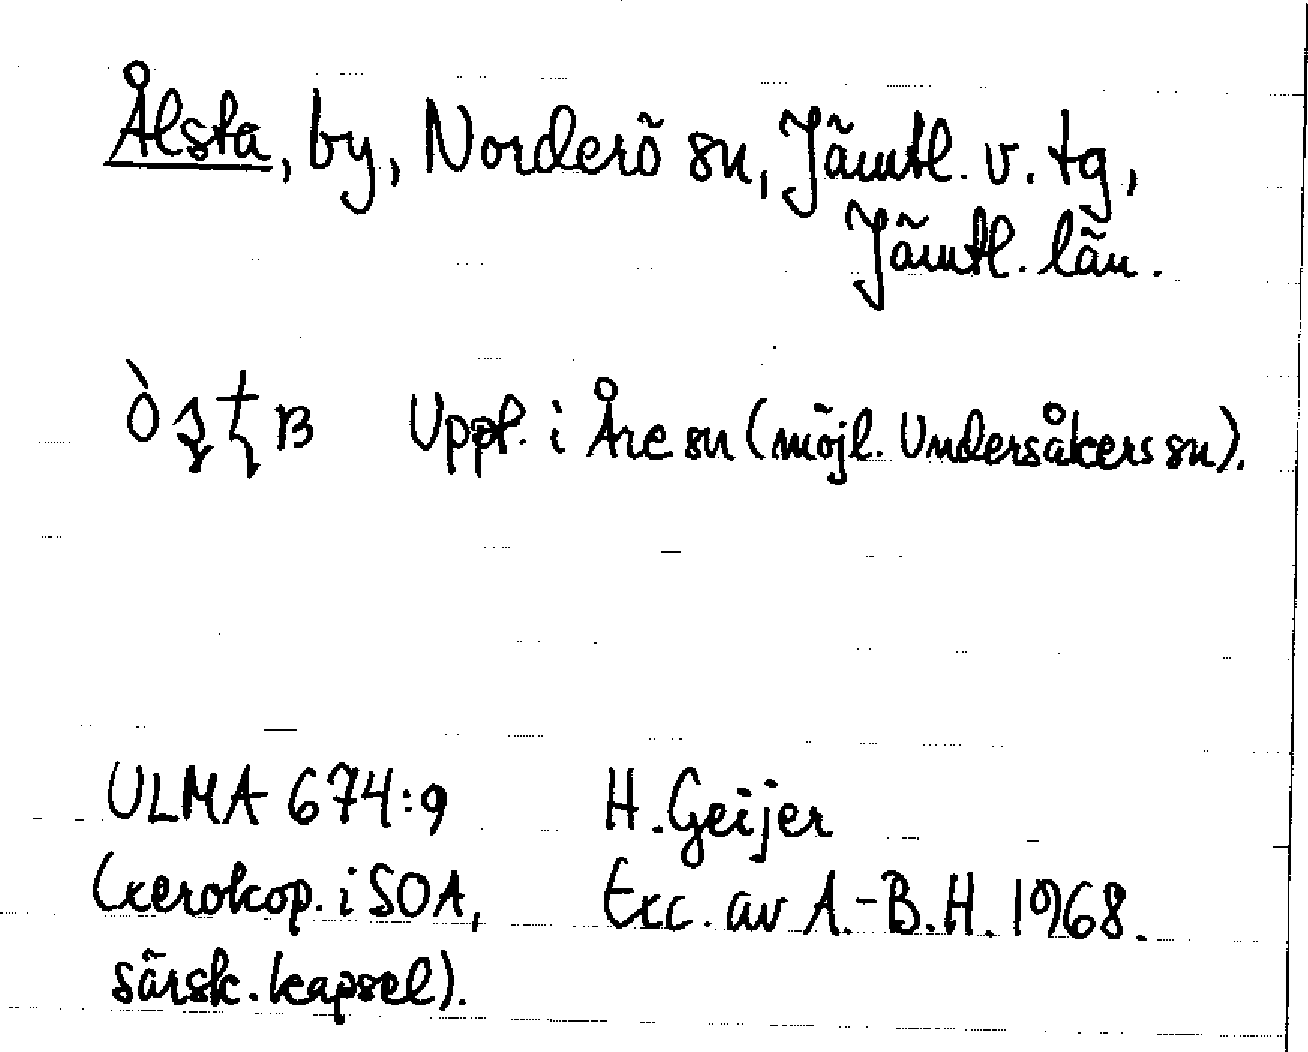 Ålsta, by, Norderö sn, Jämtl. v. tg,
Jämtl. län.
Uppt. i Åre sn (möjl. Undersåkers sn).
ULMA 674:9 H. Geijer
(xerokop. i SOA, Exc. av A.-B.H. 1968.
särsk. kapsel).